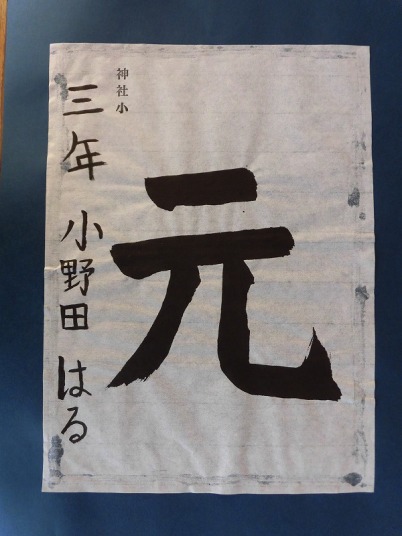 元
神社小
三年 小野田 はる